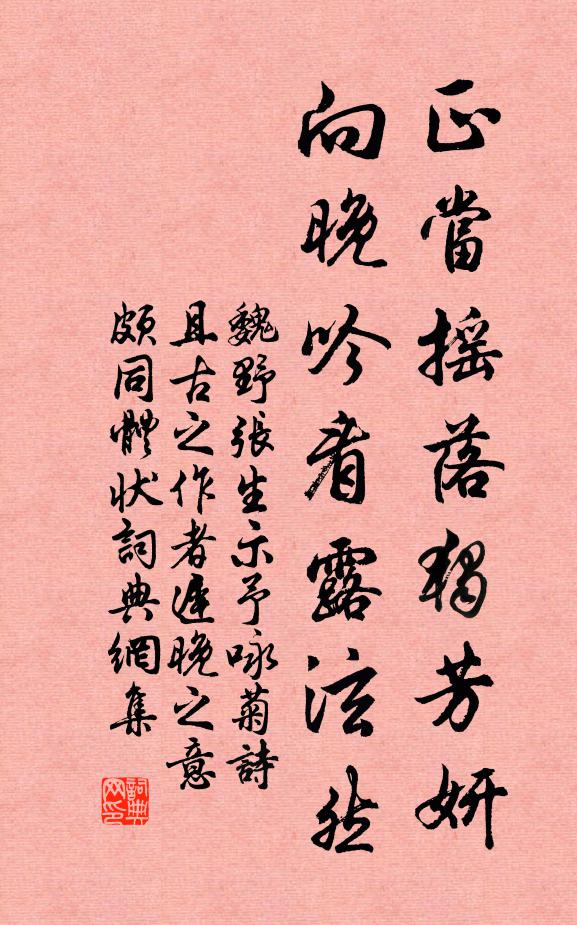 正當摇落獨芳妍
向晚吟看露泫然
魏野張生示予咏菊詩
且古之作者遲晚之意
頗同體状詞典網集
詞典网印